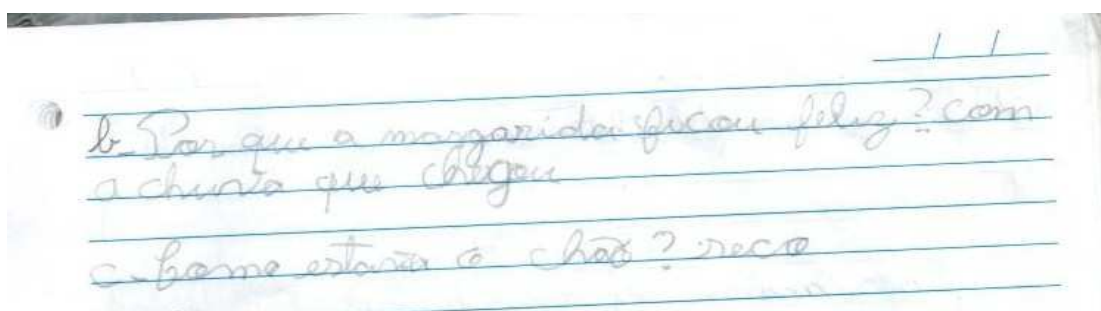 / /
b- Por que a margarida ficou feliz? com
a chuva que chegou
c- Como estava o chão? seco